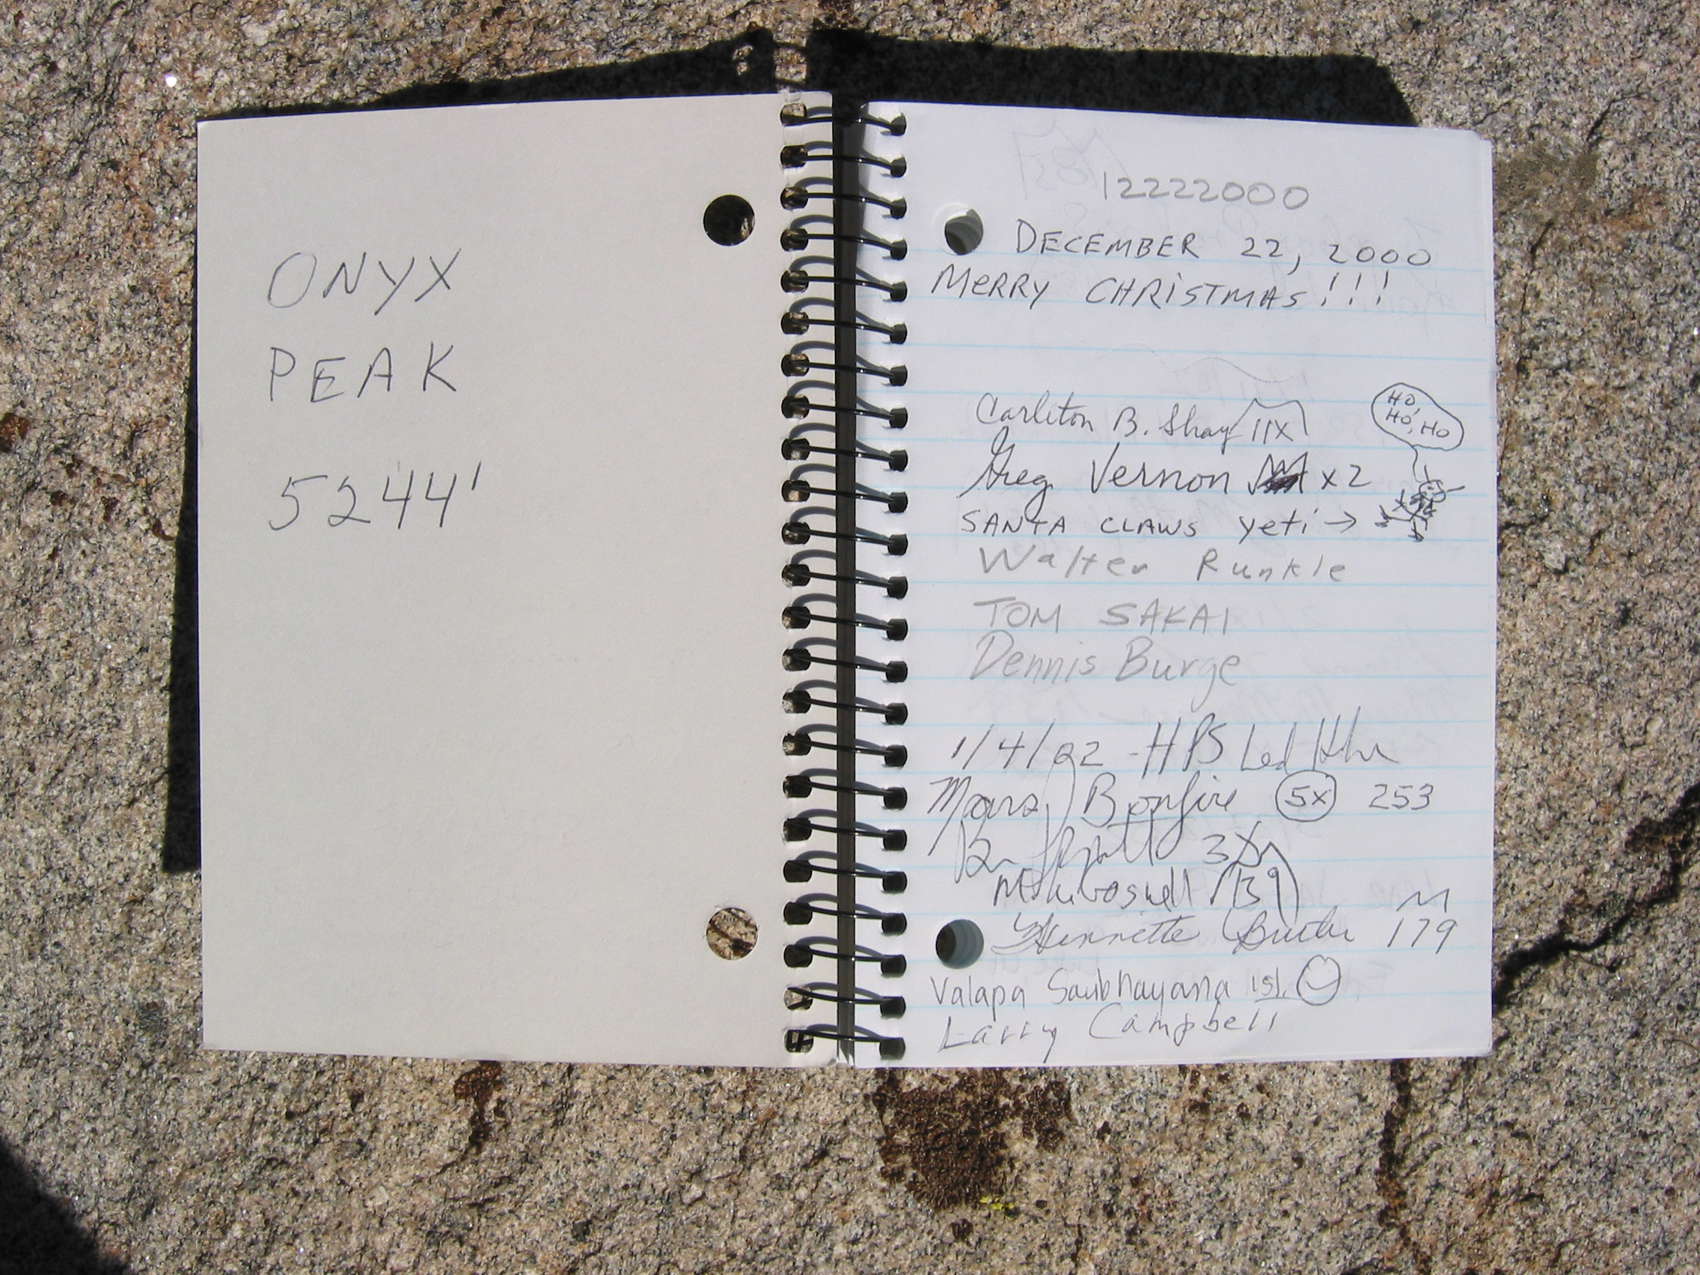 ONYX
PEAK
5244'
12222000
DECEMBER 22, 2000
MERRY CHRISTMAS!!!
Carleton B. Shay 11X
HO,
HO, HO
Greg Vernon x2
SANTA CLAWS yeti →
Walter Runkle
TOM SAKAI
Dennis Burge
1/4/02 - HPS Led
Mars Bonfire 5x 253
3X
M
179
Valapa Saubhayana 1st
Larry Campbell